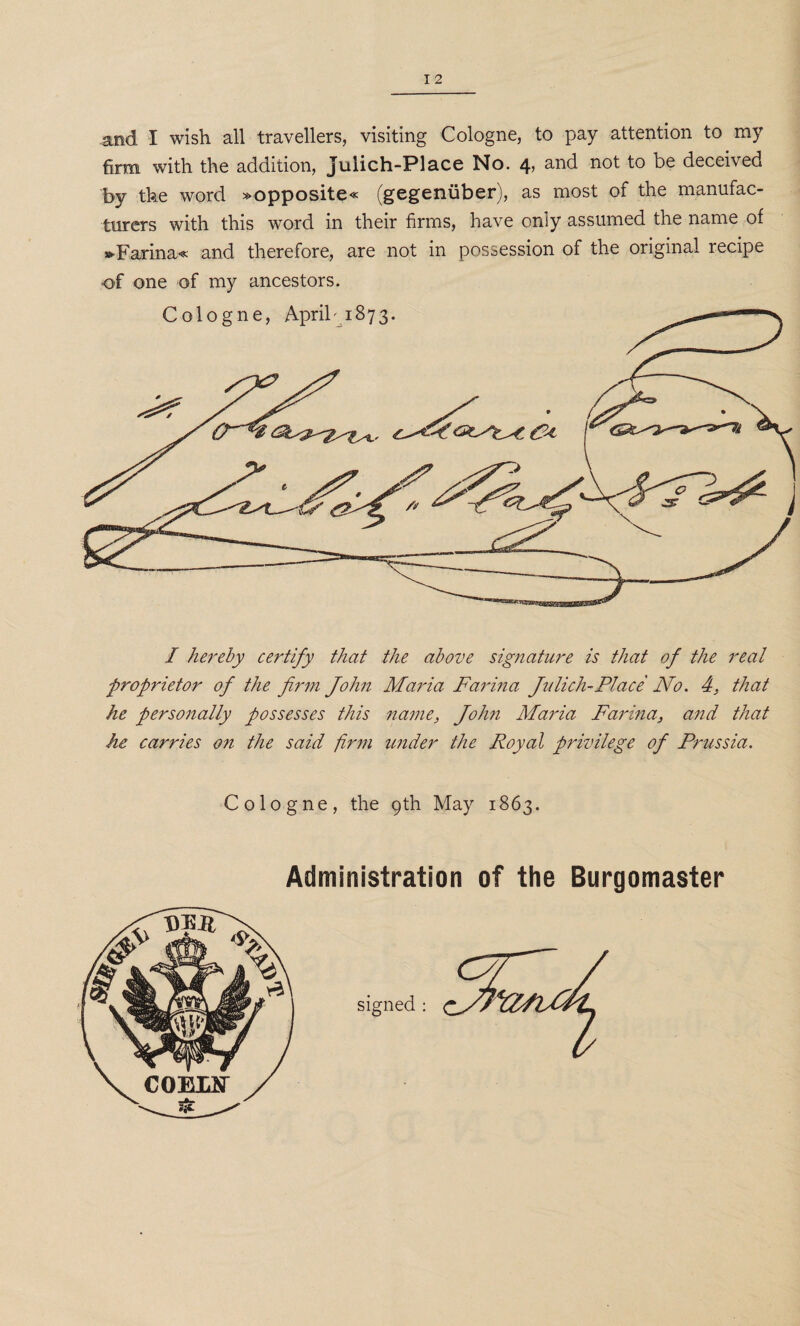 12
and I wish all travellers, visiting Cologne, to pay attention to my
firm with the addition, Julich-Place No. 4, and not to be deceived
by the word »opposite« (gegenüber), as most of the manufac-
turers with this word in their firms, have only assumed the name of
»Farina« and therefore, are not in possession of the original recipe
of one of my ancestors.
Cologne, April 1873.
Johann Maria Farina
Jülichs Platz No 4
I hereby certify that the above signature is that of the real
proprietor of the firm John Maria Farina Julich-Place No. 4, that
he personally possesses this name, John Maria Farina, and that
he carries on the said firm under the Royal privilege of Prussia.
Cologne, the 9th May 1863.
Administration of the Burgomaster
SIEGEL DER STADT
COELN
signed :